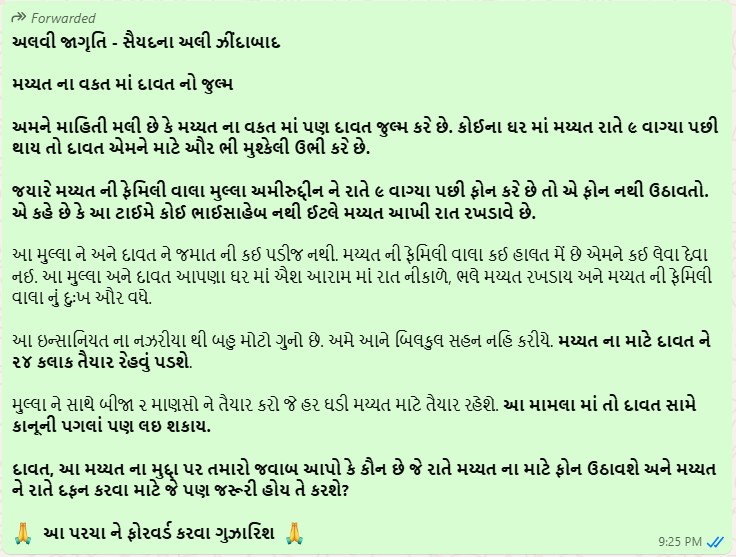 Forwarded
અલવી જાગૃતિ - સૈયદના અલી ઝીંદાબાદ
મય્યત ના વકત માં દાવત નો જુલ્મ
અમને માહિતી મલી છે કે મય્યત ના વકત માં પણ દાવત જુલ્મ કરે છે. કોઈના ઘર માં મય્યત રાતે ૯ વાગ્યા પછી
થાય તો દાવત એમને માટે ઔર ભી મુશ્કેલી ઉભી કરે છે.
જયારે મય્યત ની ફેમિલી વાલા મુલ્લા અમીરુદ્દીન ને રાતે ૯ વાગ્યા પછી ફોન કરે છે તો એ ફોન નથી ઉઠાવતો.
એ કહે છે કે આ ટાઈમે કોઈ ભાઈસાહેબ નથી ઈટલે મય્યત આખી રાત રખડાવે છે.
આ મુલ્લા ને અને દાવત ને જમાત ની કઈ પડીજ નથી. મય્યત ની ફેમિલી વાલા કઈ હાલત મેં છે એમને કઈ લેવા દેવા
નઈ. આ મુલ્લા અને દાવત આપણા ઘર માં ઐશ આરામ માં રાત નીકાળે, ભલે મય્યત રખડાય અને મય્યત ની ફેમિલી
વાલા નું દુઃખ ઔર વધે.
આ ઇન્સાનિયત ના નઝરીયા થી બહુ મોટો ગુનો છે. અમે આને બિલકુલ સહન નહિ કરીયે. મય્યત ના માટે દાવત ને
૨૪ કલાક તૈયાર રેહવું પડશે.
મુલ્લા ને સાથે બીજા ૨ માણસો ને તૈયાર કરો જે હર ઘડી મય્યત માટે તૈયાર રહેશે. આ મામલા માં તો દાવત સામે
કાનૂની પગલાં પણ લઇ શકાય.
દાવત, આ મય્યત ના મુદ્દા પર તમારો જવાબ આપો કે કૌન છે જે રાતે મય્યત ના માટે ફોન ઉઠાવશે અને મય્યત
ને રાતે દફન કરવા માટે જે પણ જરૂરી હોય તે કરશે?
🙏 આ પરચા ને ફોરવર્ડ કરવા ગુઝારિશ 🙏
9:25 PM